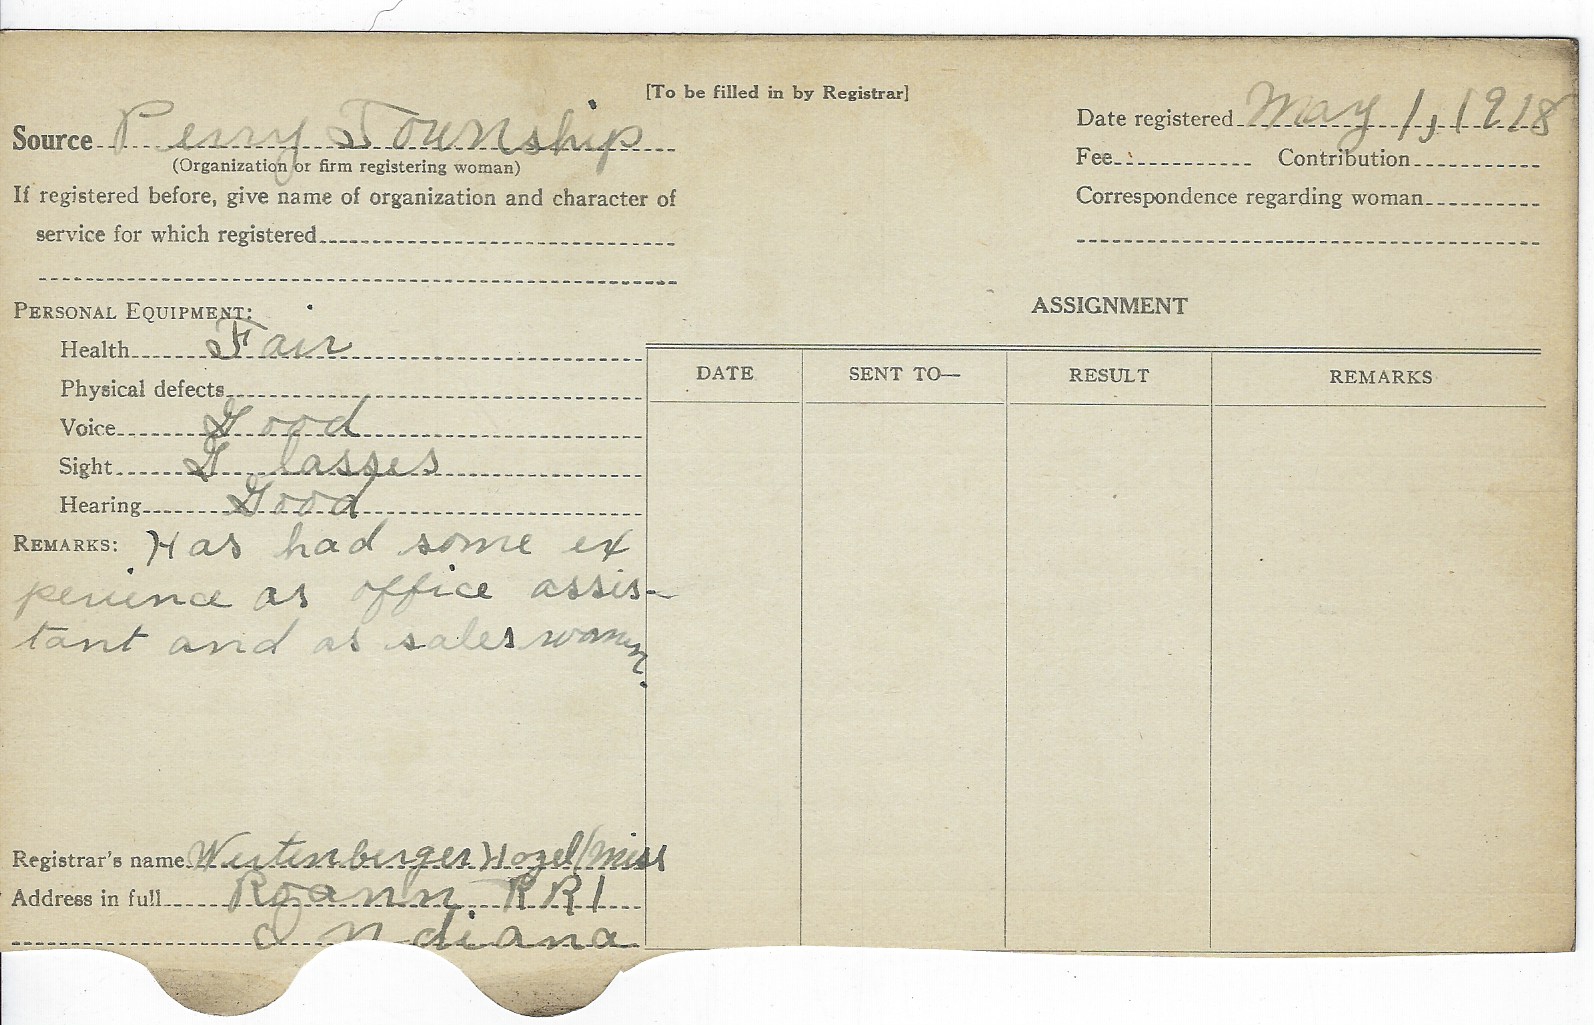 [To be filled in by Registrar]
Source Perry Township
(Organization or firm registering woman)
If registered before, give name of organization and character of
service for which registered
Date registered May 1, 1918
Fee Contribution
Correspondence regarding woman
PERSONAL EQUIPMENT:
Health Fair
Physical defects
Voice Good
Sight Glasses
Hearing Good
REMARKS: Has had some ex
perience as office assis-
tant and as saleswoman.
Registrar's name Westenberger Hazel/Miss
Address in full Roann RR1
Indiana
ASSIGNMENT
DATE SENT TO— RESULT REMARKS